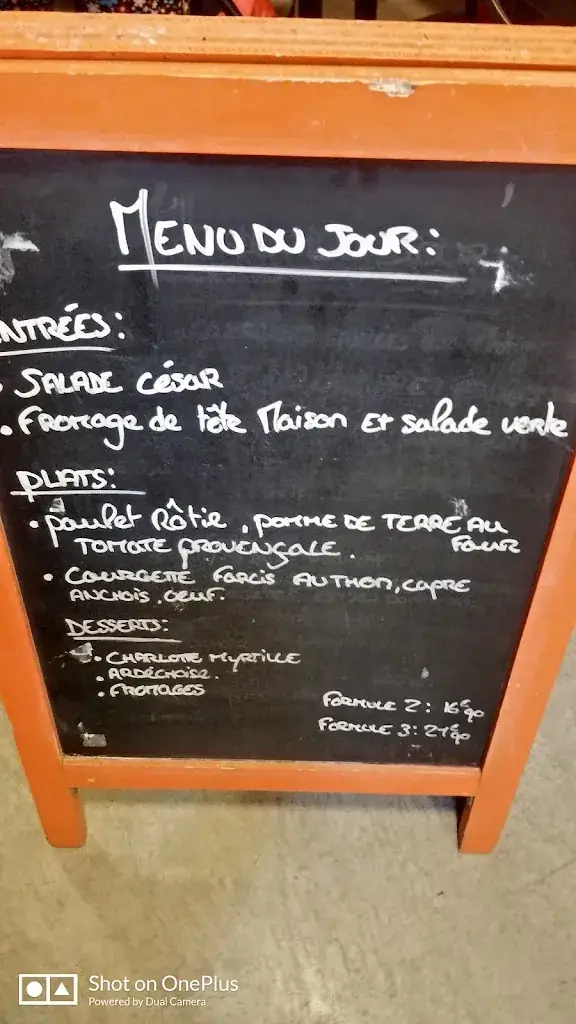 MENU DU JOUR:
NTRÉES:
• SALADE CÉSAR
• fromage de tête Maison Et salade verte
PLATS:
• poulet Rôtie, pomme DE TERRE AU
TOMATE PROVENÇALE. FOUR
• COURGETTE FARCIS AU THON, CAPRE
ANCHOIS, OEUF.
DESSERTS:
• CHARLOTTE MYRTILLE
• ARDÉCHOISE.
• FROMAGES
FORMULE 2: 16€90
FORMULE 3: 21€90
Shot on OnePlus
Powered by Dual Camera